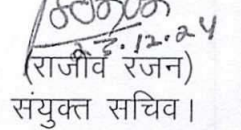 23.12.24
(राजीव रंजन)
संयुक्त सचिव।